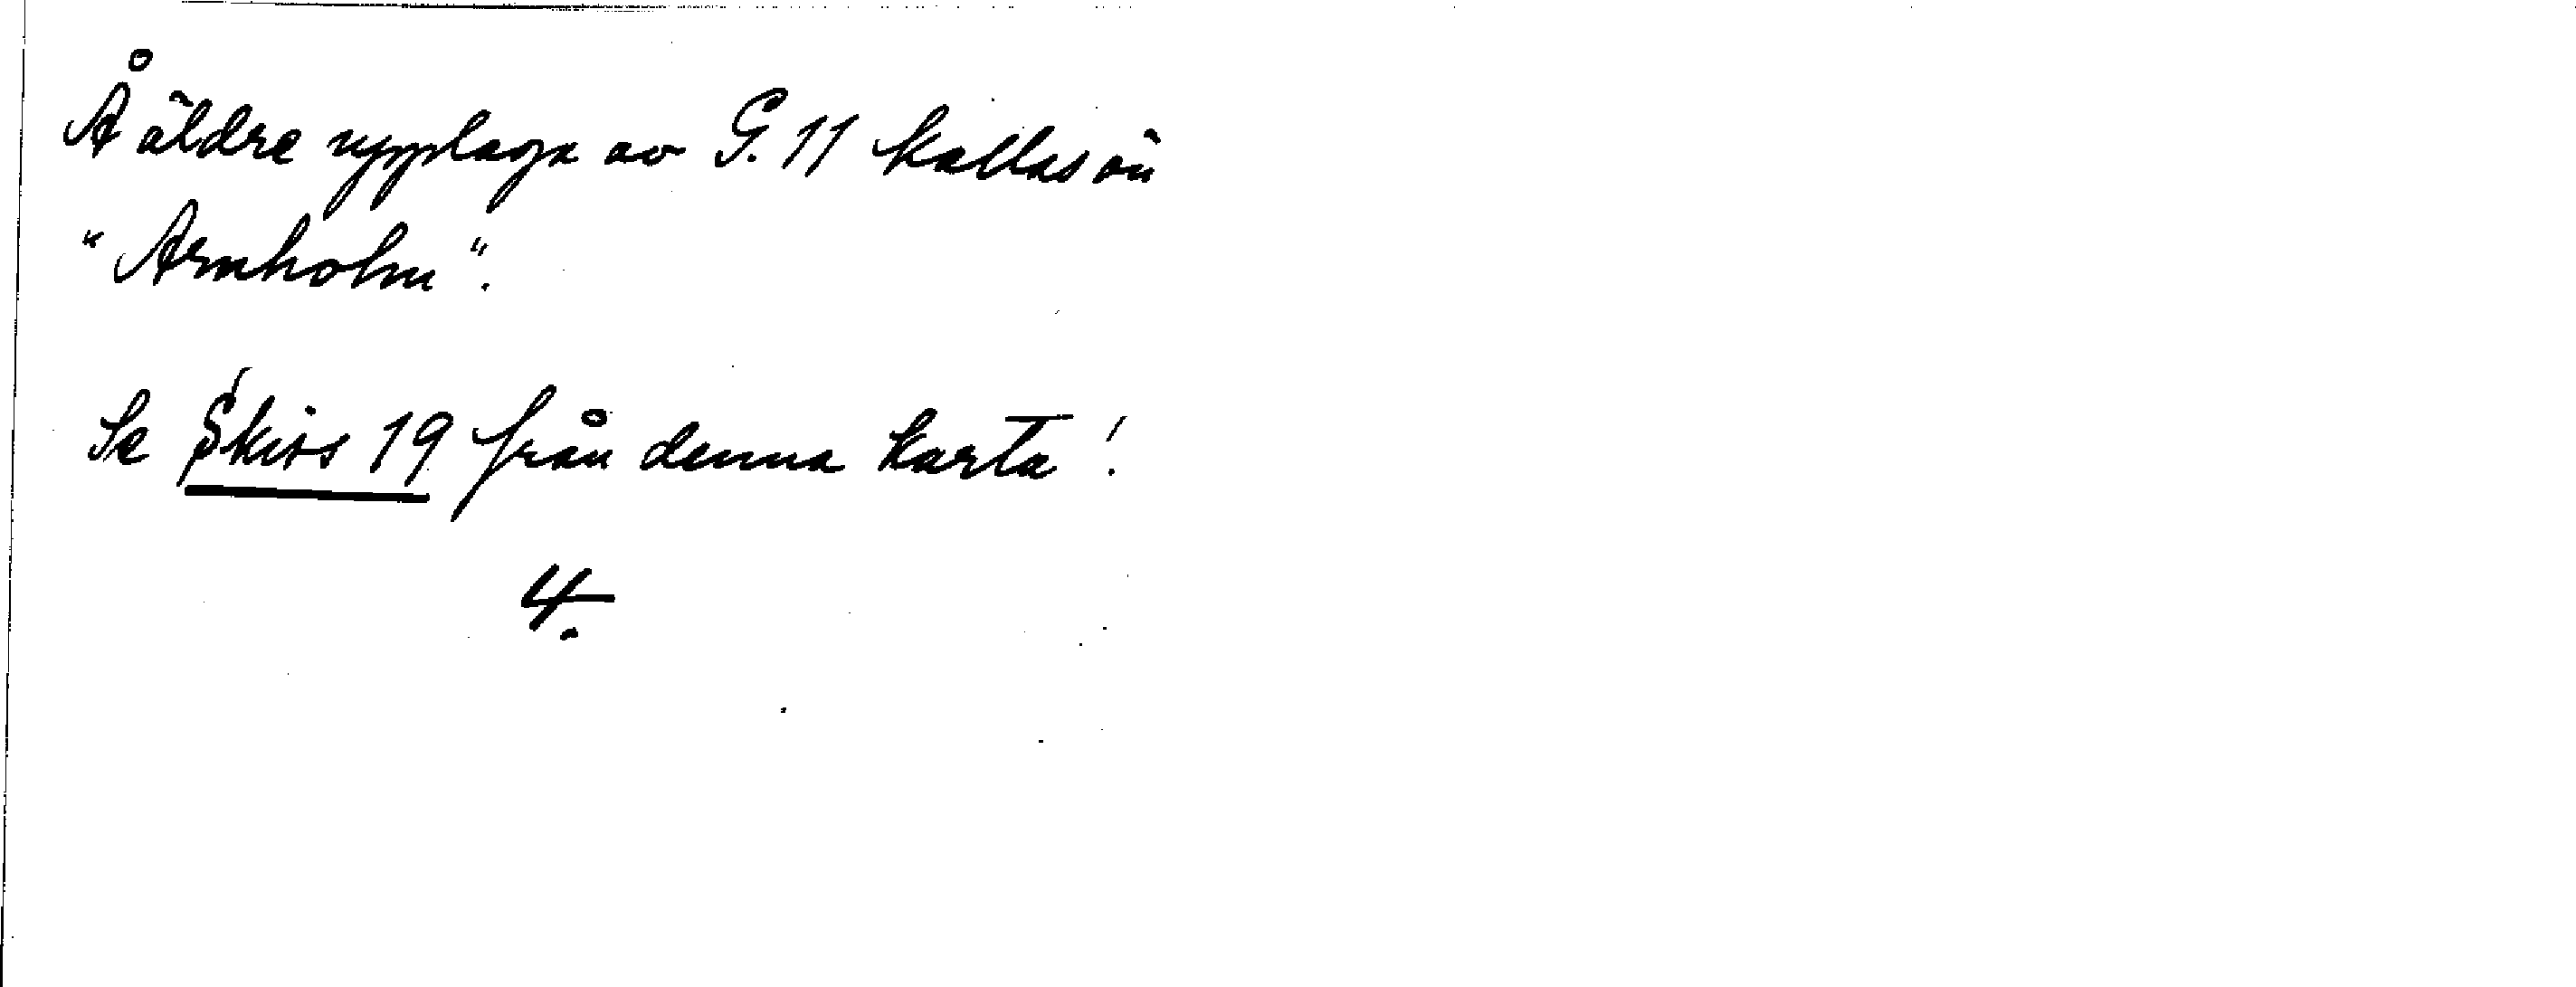 Å äldre upplaga av G. 11 kallas ön
"Armholm".
Se Skiss 19 från denna karta!
4.